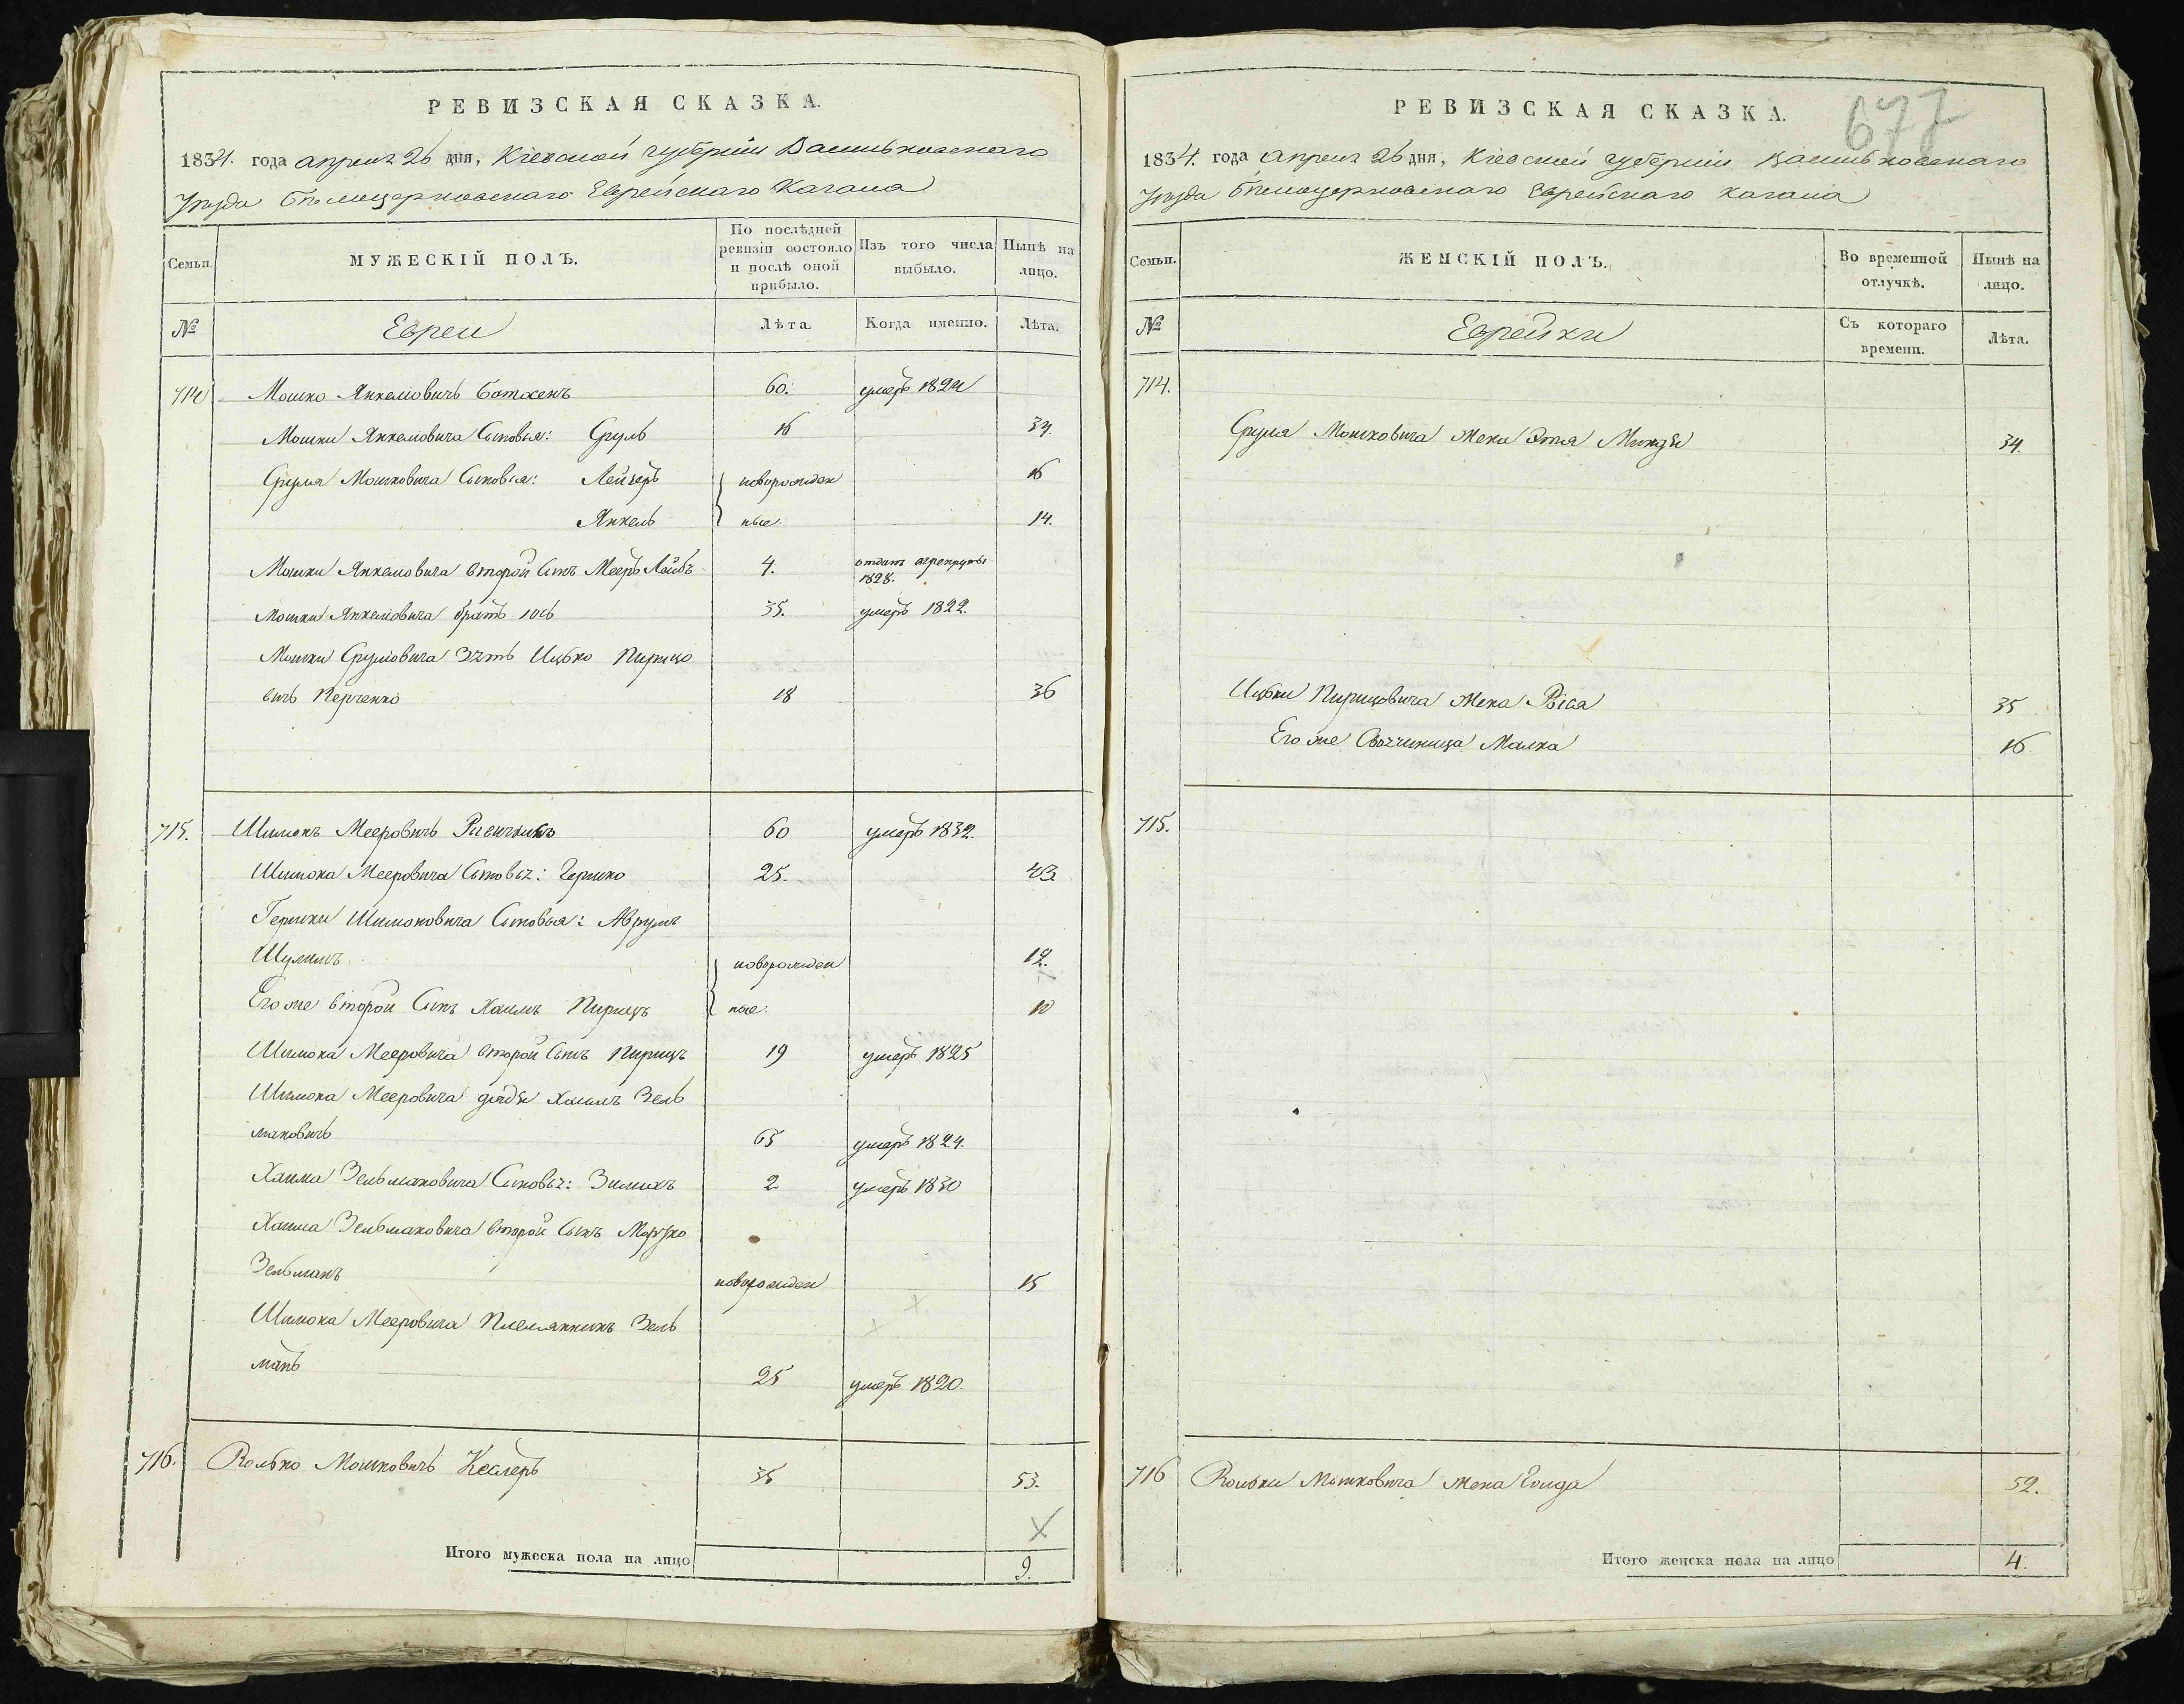 РЕВИЗСКАЯ СКАЗКА.
1834. года апреля 26 дня, Кіевской губерніи Васильковскаго
Уезда Белоцерковскаго Еврейскаго Кагала
Семьи.
МУЖЕСКІЙ ПОЛЪ.
По послѣдней ревизіи состояло и послѣ оной прибыло.
Изъ того числа выбыло.
Нынѣ на лицо.
№
Евреи
Лѣта.
Когда именно.
Лѣта.
714 Мошко Янкелювичъ 60. умеръ 1824
Мошки Янкелювича Сыновья: Сруль 16 34
Сруля Мошковича Сыновья: Лейзеръ новорожден 16
Янкель ные. 14.
Мошки Янкелювича второй Сынъ Мееръ Лейбъ 4. отдатъ 1828.
Мошки Янкелювича братъ 35. умеръ 1822.
Мошки Срулювича Зять Ицько Пирицо
вичъ 18 36
715. Шимонъ Мееровичъ 60 умеръ 1832.
Шимона Мееровича Сыновья: Гершко 25. 43
Гершки Шимоновича Сыновья: Аврумъ
Шулимъ новорожден 12.
Его же второй Сынъ Хаимъ Пирицъ ные. 10
Шимона Мееровича второй Сынъ Пирицъ 19 умеръ 1825
Шимона Мееровича дядя Хаимъ Зель
мановичъ 65 умеръ 1824.
Хаима Зельмановича Сыновья: 2 умеръ 1830
Хаима Зельмановича второй Сынъ
Зельманъ новорожден 15
Шимона Мееровича Племянникъ Зель
манъ 25 умеръ 1820.
716. Волько Мошковичъ Кеслеръ 35 53.
Итого мужеска пола на лицо 9.
677
РЕВИЗСКАЯ СКАЗКА.
1834. года апреля 26 дня, Кіевской губерніи Васильковскаго
Уезда Белоцерковскаго Еврейскаго Кагала
Семьи.
ЖЕНСКІЙ ПОЛЪ.
Во временной отлучкѣ.
Нынѣ на лицо.
№
Еврейки
Съ котораго времени.
Лѣта.
714.
Сруля Мошковича жена Этя 34.
Ицьки Пирицовича жена 35
Его же Малка 16
715.
716 Вольки Мошковича жена 52.
Итого женска пола на лицо 4.